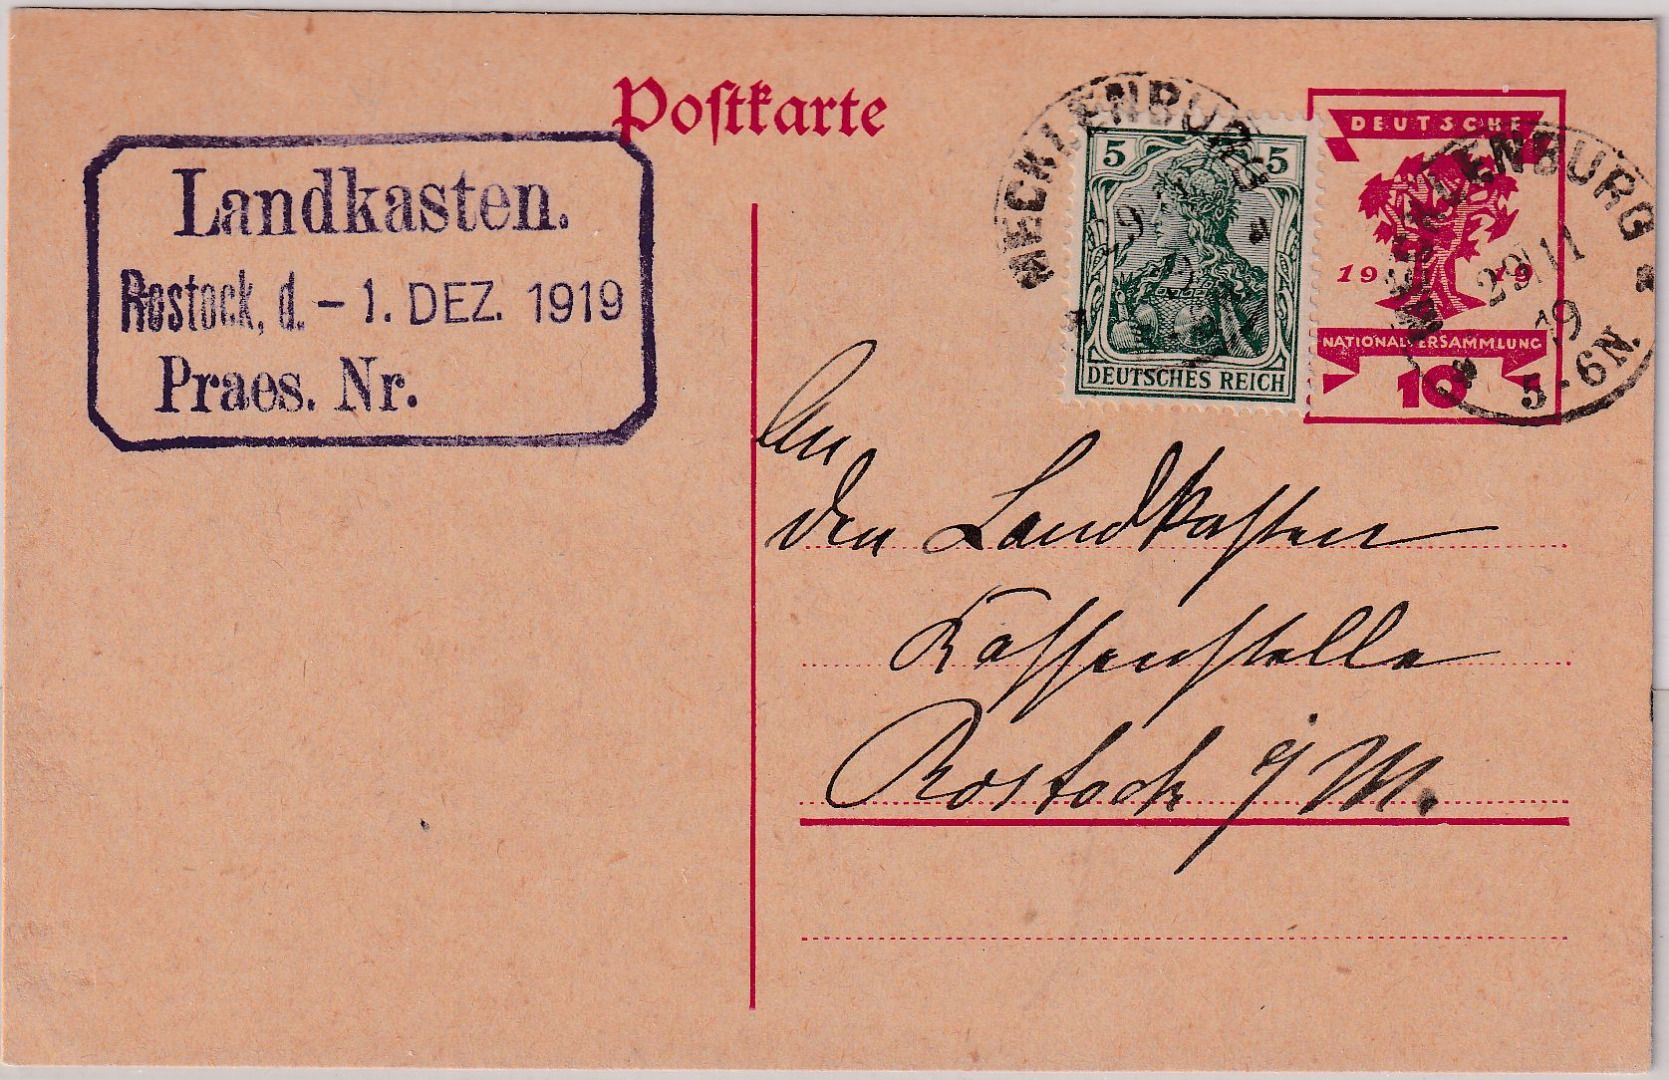 Postkarte
Landkasten.
Rostock, d. - 1. DEZ. 1919
Praes. Nr.
MECKLENBURG
5 5
DEUTSCHES REICH
DEUTSCHE
19 19
NATIONALVERSAMMLUNG
10
MECKLENBURG
29/11
19
5-6N.
An
den Landkasten
Kassenstelle
Rostock i/M.